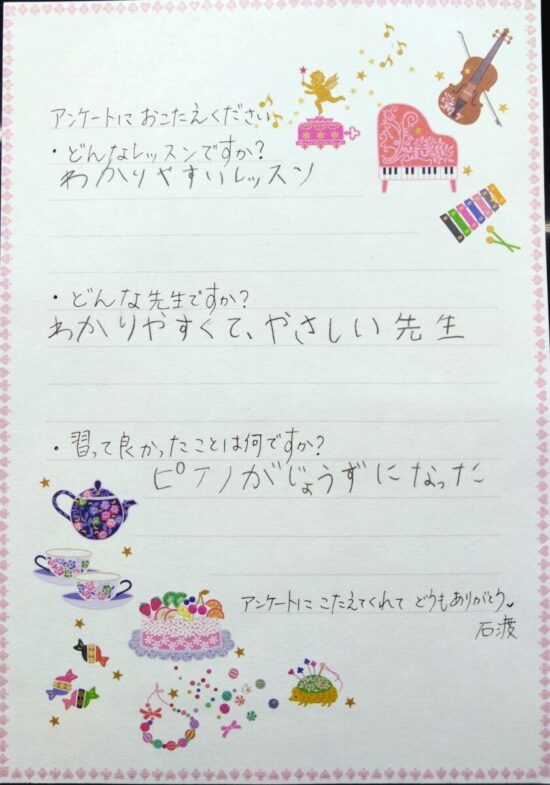 アンケートに おこたえください
・どんなレッスンですか?
わかりやすいレッスン
・どんな先生ですか?
わかりやすくて、やさしい先生
・習って良かったことは何ですか?
ピアノがじょうずになった
アンケートにこたえてくれて どうもありがとう。
石渡